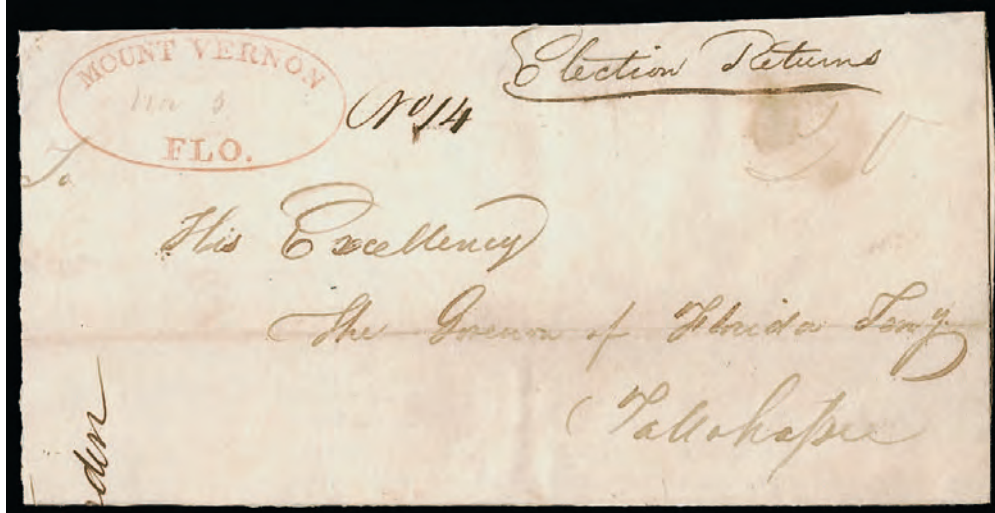 MOUNT VERNON
FLO.
Election Returns
No 14
To
His Excellency
The Govenor of Florida Terry.
Tallahassee